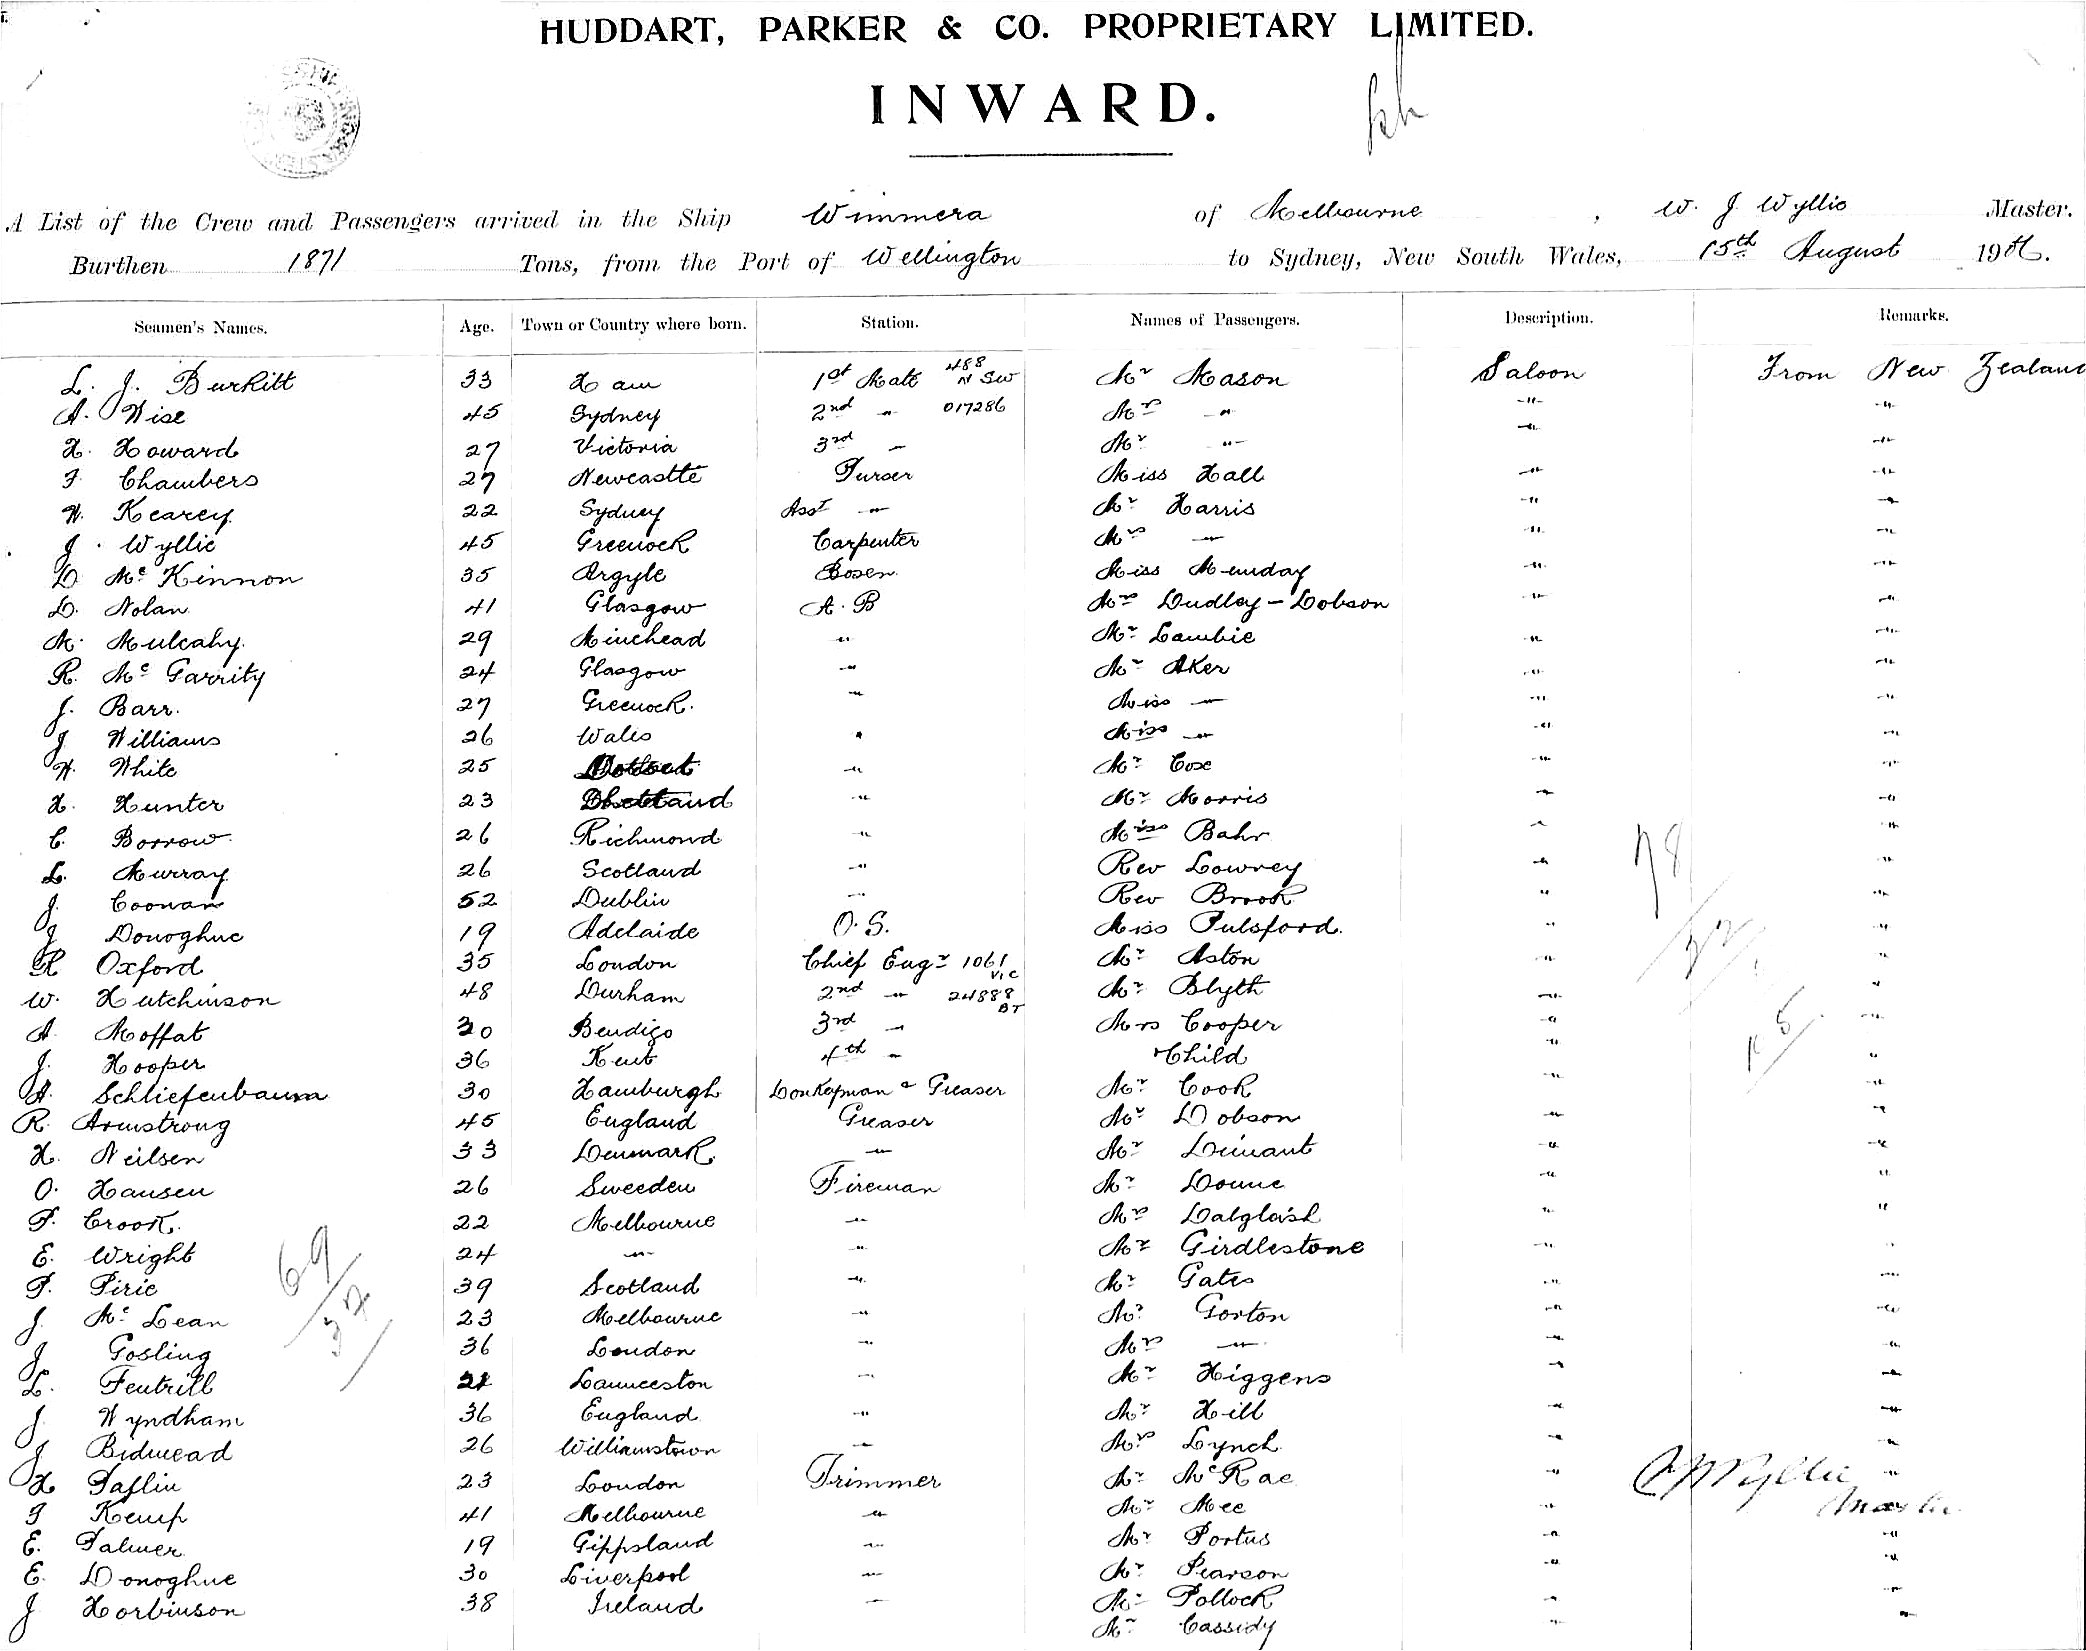 HUDDART, PARKER & CO. PROPRIETARY LIMITED.
INWARD.
A List of the Crew and Passengers arrived in the Ship Wimmera of Melbourne, W. J. Wyllie Master.
Burthen 1871 Tons, from the Port of Wellington to Sydney, New South Wales, 15th August 190
Seamen's Names. Age. Town or Country where born. Station. Names of Passengers. Description. Remarks.
L. J. Burkitt 33 Ham 1st Mate 488 N SW Mr Mason Saloon From New Zealand
A. Wise 45 Sydney 2nd " 017286 Mrs " " "
H. Howard 27 Victoria 3rd " Mr " " "
F Chambers 27 Newcastle Purser Miss Hall " "
W. Kearey 22 Sydney Asst " Mr Harris " "
J. Wyllie 45 Greenock Carpenter Mrs " " "
D McKinnon 35 Argyle Bosen Miss Munday " "
D. Nolan 41 Glasgow A.B Mrs Dudley-Dobson " "
M. Mulcahy 29 Minehead " Mr Lambie " "
R. McGarrity 24 Glasgow " Mr Aker " "
J. Barr. 27 Greenock. " Miss " " "
J Williams 26 Wales " Miss " " "
W. White 25 " Mr Cox " "
H. Hunter 23 Shetland " Mr Morris " "
C. Borrow 26 Richmond " Miss Bahr " "
L. Murray 26 Scotland " Rev Lowrey " "
J. Coonan 52 Dublin " Rev Brook " "
J Donoghue 19 Adelaide O.S. Miss Pulsford. " "
R Oxford 35 London Chief Engr 1061 VIC Mr Aston " "
W. Hutchinson 48 Durham 2nd " 24888 BT Mr Blyth " "
A. Moffat 30 Bendigo 3rd " Mrs Cooper " "
J. Hooper 36 Kent 4th " Child " "
A. Schliefenbaum 30 Hamburgh Donkeyman & Greaser Mr Cook " "
R. Armstrong 45 England Greaser Mr Dobson " "
H. Neilsen 33 Denmark " Mr Dinant " "
O. Hansen 26 Sweeden Fireman Mr Donne " "
P. Crook. 22 Melbourne " Mrs Dalgleish " "
E. Wright 24 " " Mr Girdlestone " "
P. Pirie 39 Scotland " Mr Gates " "
J. McLean 23 Melbourne " Mr Gorton " "
J Gosling 36 London " Mrs " " "
L. Fentrill 21 Launceston " Mr Higgens " "
J. Wyndham 36 England " Mr Hill " "
J Bidmead 26 Williamstown " Mrs Lynch " "
H Taflin 23 London Trimmer Mr McRae " "
J Kemp 41 Melbourne " Mr Mee " "
E. Palmer 19 Gippsland " Mr Portus " "
E. Donoghue 30 Liverpool " Mr Pearson " "
J Horbinson 38 Ireland " Mr Pollock " "
Mr Cassidy "
69
32
78
32
Wyllie
Master